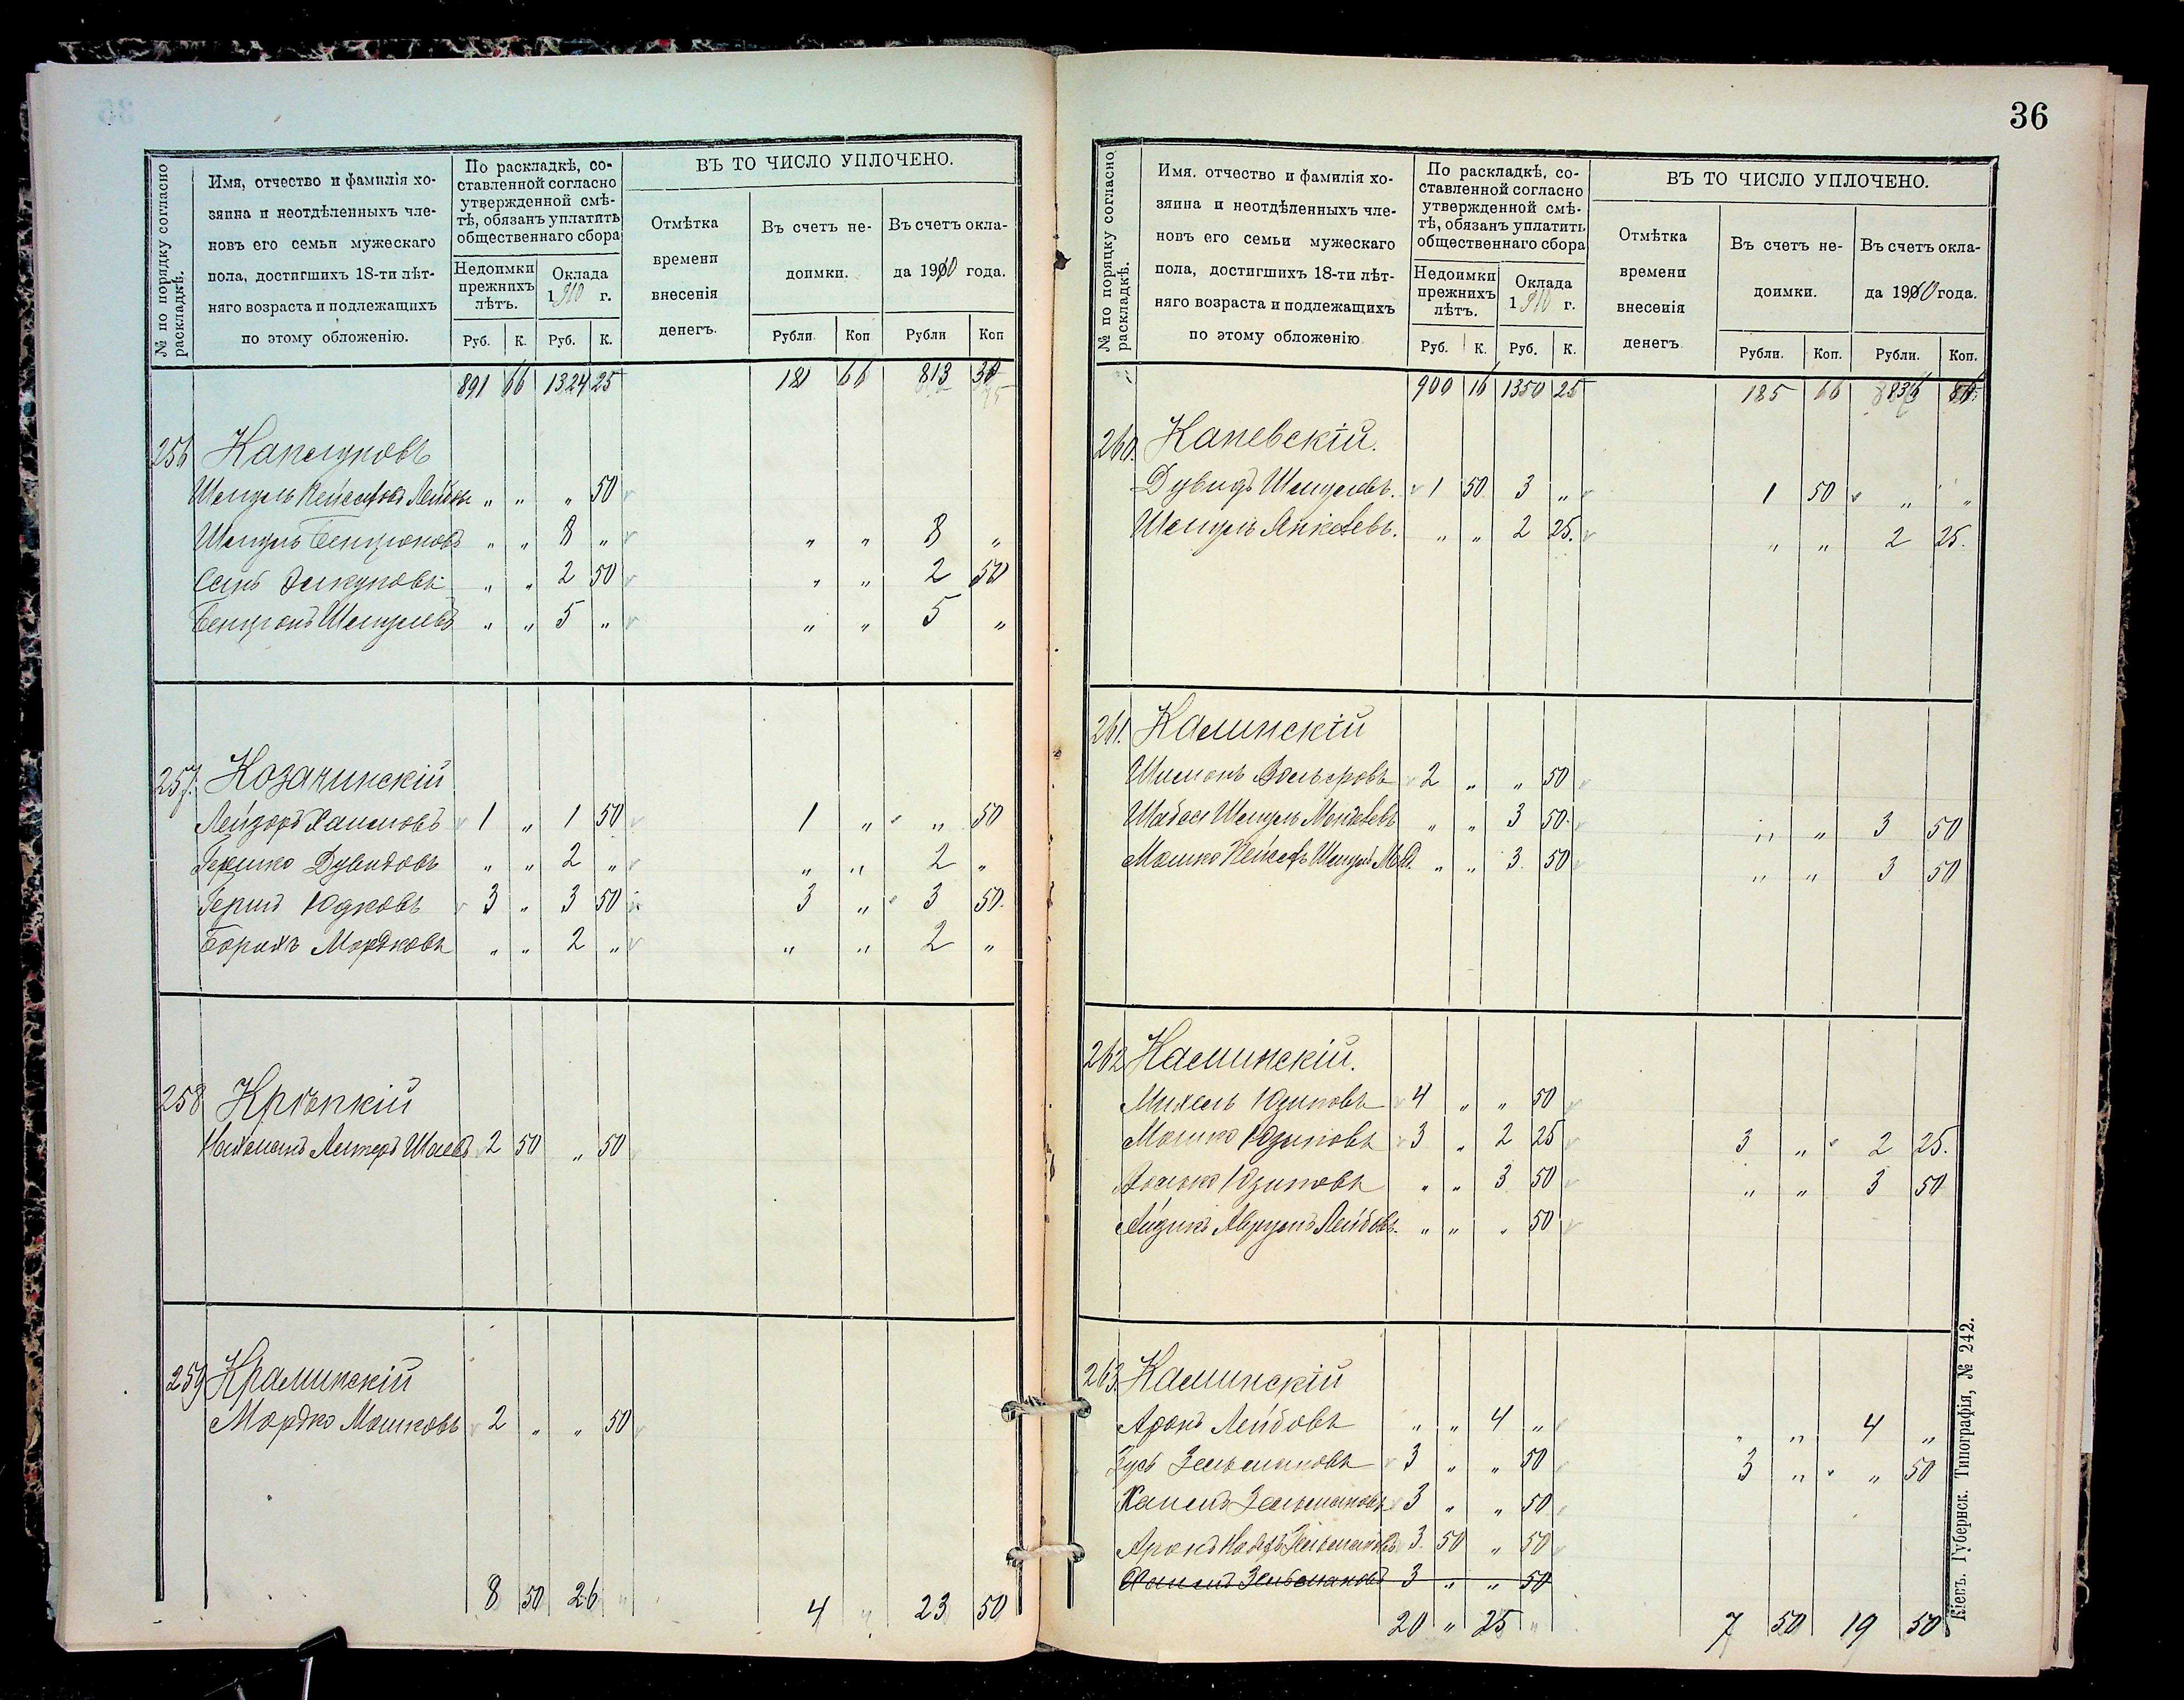 36
№ по порядку согласно раскладкѣ.
Имя, отчество и фамилія хо-
зяина и неотдѣленныхъ чле-
новъ его семьи мужескаго
пола, достигшихъ 18-ти лѣт-
няго возраста и подлежащихъ
по этому обложенію.
По раскладкѣ, со-
ставленной согласно
утвержденной смѣ-
тѣ, обязанъ уплатить
общественнаго сбора
Недоимки прежнихъ лѣтъ.
Оклада 1910 г.
Руб. К. Руб. К.
ВЪ ТО ЧИСЛО УПЛОЧЕНО.
Отмѣтка
времени
внесенія
денегъ.
Въ счетъ не-
доимки.
Въ счетъ окла-
да 1910 года.
Рубли Коп Рубли Коп
891 66 1324 25 181 66 813
256 Капелуновъ
50
Шмуль Бенціоновъ " " 8 " " " 8 "
" " 2 50 " " 2 50
Бенціонъ Шмулевъ " " 5 " " " 5 "
257. Козачинскій
Лейзоръ Хаимовъ 1 " 1 50 1 " " 50
Гершко Дувидовъ " " 2 " " " 2 "
Гершъ Юдковъ 3 " 3 50 3 " 3 50.
Борухъ Мордковъ " " 2 " " " 2 "
258 Крѣпкій
Нахманъ Лейзеръ 2 50 " 50
259 Краминскій
Мордко Мошковъ 2 " " 50
8 50 26 " 4 " 23 50
№ по порядку согласно раскладкѣ.
Имя. отчество и фамилія хо-
зяина и неотдѣленныхъ чле-
новъ его семьи мужескаго
пола, достигшихъ 18-ти лѣт-
няго возраста и подлежащихъ
по этому обложенію
По раскладкѣ, со-
ставленной согласно
утвержденной смѣ-
тѣ, обязанъ уплатить
общественнаго сбора
Недоимки прежнихъ лѣтъ.
Оклада 1910 г.
Руб. К. Руб. К.
ВЪ ТО ЧИСЛО УПЛОЧЕНО.
Отмѣтка
времени
внесенія
денегъ
Въ счетъ не-
доимки.
Въ счетъ окла-
да 1910 года.
Рубли. Коп. Рубли. Коп.
900 16 1350 25 185 66
260. Каневскій.
Дувидъ Шмулевъ. 1 50. 3 " 1 50 " "
Шмуль Янкелевъ. " " 2 25. " " 2 25.
261. Калинскій
Шимонъ 2 " " 50
Шмуль " " 3 50. " " 3 50
Мошко Шмуль " " 3. 50 " " 3 50
262 Каминскій.
Михель 4 " " 50
Мошко 3 " 2 25 3 " 2 25.
" " 3 50 " " 3 50
Лейбовъ. " " " 50
263. Каминскій
Аронъ Лейбовъ " " 4 " " " 4 "
Зусь Зельмановъ 3 " " 50 3 " " 50
Хаимъ Зельмановъ 3 " " 50
Аронъ Зельмановъ 3. 50 " 50
Хаимъ Зельмановъ 3 " " 50
20 " 25 " 7 50 19 50
Кіевъ. Губернск. Типографія, № 242.